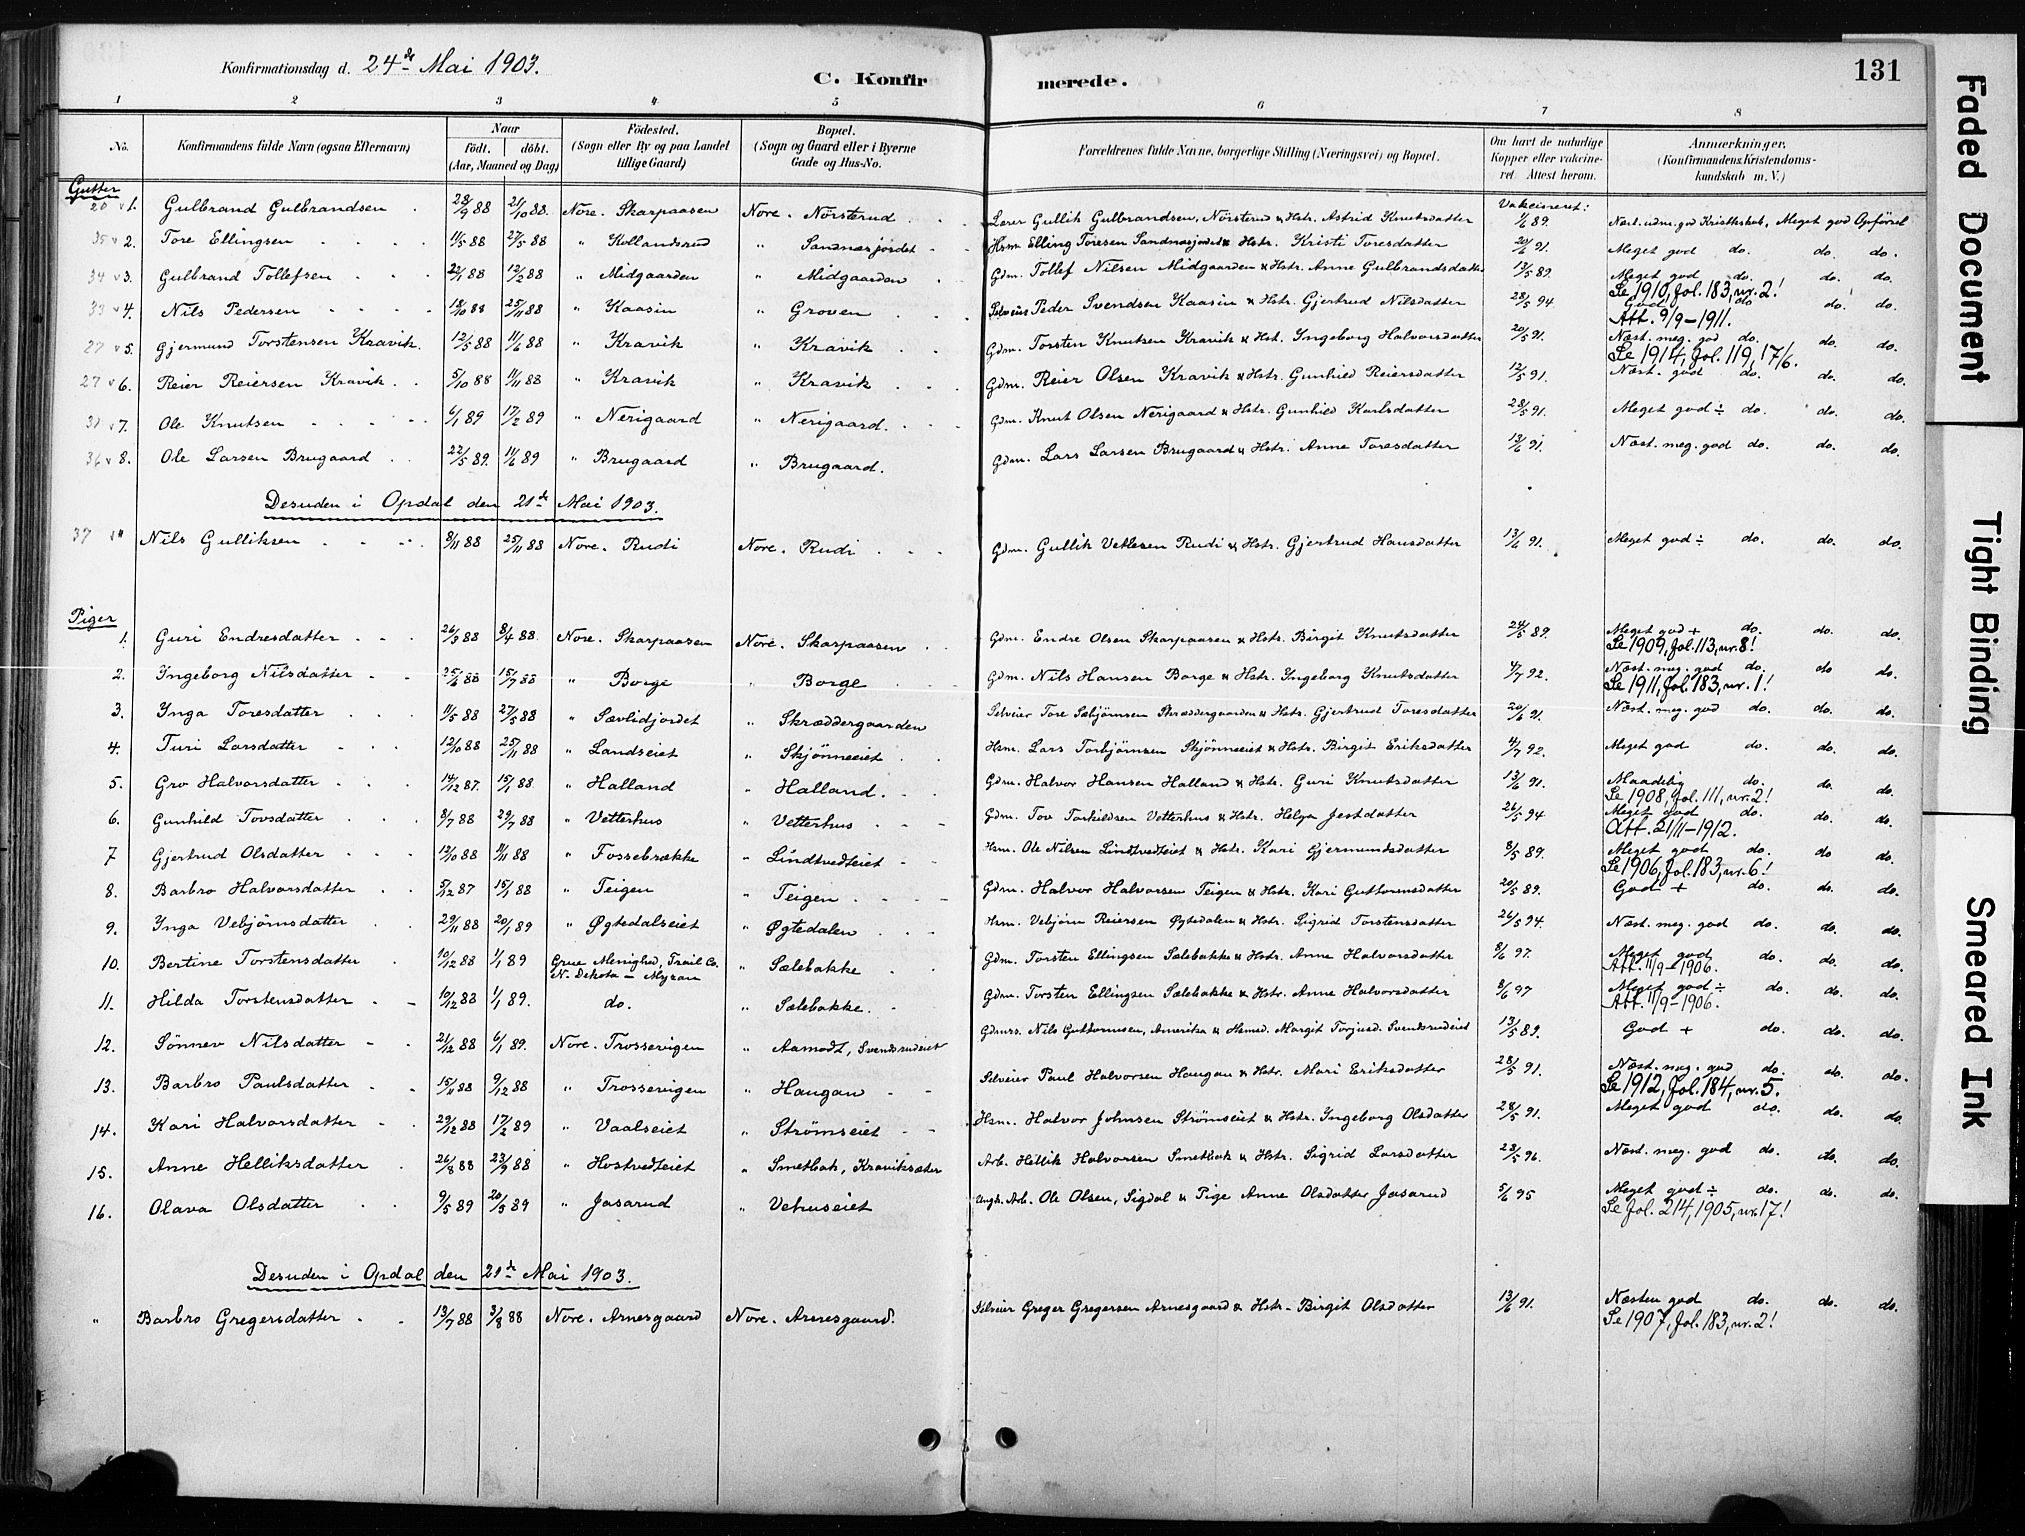 Konfirmationsdag d. 24de Mai 1903. C. Konfirmerede. 131
1 2 3 4 5 6 7 8
No. Konfirmandens fulde Navn (ogsaa Efternavn) Naar Födt. döbt. (Aar, Maaned og Dag) Födested. (Sogn eller By og paa Landet tillige Gaard) Bopæl. (Sogn og Gaard eller i Byerne Gade og Hus-No. Forældrenes fulde Navne, borgerlige Stilling (Næringsvei) og Bopæl. Om havt de naturlige Kopper eller vakcineret. Attest herom. Anmærkninger. (Konfirmandens Kristendomskundskab m. V.)
Gutter Vakcineret:
20 v 1. Gulbrand Gulbrandsen 28/9 88 21/10 88. Nore. Skarpaasen Nore. Nørsterud Lærer Gullik Gulbrandsen, Nørsterud & Hstr. Astrid Knutsdatter 1/6 89. Næst. udm. god Kristkskab, Meget god Opførsel
35 v 2. Tore Ellingsen 11/5 88 27/5 88 " Kollandsrud " Sandnæsjordet Hsm. Elling Toresen Sandnæsjordet & Hstr. Kristi Toresdatter 20/6 91. Meget god do. do. do.
34 v 3. Gulbrand Tollefsen 22/1 88 12/2 88 " Midgaarden " Midgaarden Gdm. Tollef Nilsen Midgaarden & Hstr. Anne Gulbrandsdatter 13/5 89. Meget god do. do. do.
Se 1910, fol. 183, nr. 2!
33 v 4. Nils Pedersen 18/10 88 25/11 88 " Kaasin " Groven Selveier Peder Svendsen Kaasin & Hstr. Gjertrud Nilsdatter 28/5 94 God do. do. do.
Att. 9/9-1911.
27 v 5. Gjermund Torstensen Kravik. 12/5 88 11/6 88 " Kravik " Kravik Gdm. Torsten Knutsen Kravik & Hst. Ingeborg Halvorsdatter 20/5 91. Næst. meg. god do. do. do.
Se 1914, fol. 119, 17/6.
27 v 6. Reier Reiersen Kravik 5/10 88 11/11 88 " Kravik " Kravik Gdm. Reier Olsen Kravik & Hstr. Gunhild Reiersdatter 12/5 91. Næst. god do. do. do.
31 v 7. Ole Knutsen 6/1 89 17/2 89 " Nerigaard " Nerigaard. Gdm. Knut Olsen Nerigaard & Hstr. Gunhild Karlsdatter 28/5 91. Meget god ÷ do. do. do.
36 v 8. Ole Larsen Brugaard 22/5 89. 11/6 89 " Brugaard " Brugaard. Gdm. Lars Larsen Brugaard & Hstr. Anne Toresdatter 13/6 91. Næst. meg. god do. do. do.
Desuden i Opdal den 21de Mai 1903.
37 v " Nils Gulliksen 8/11 88 25/11 88 Nore. Rudi Nore. Rudi Gdm. Gullik Vetlesen Rudi & Hstr. Gjertrud Hansdatter 13/6 91. Meget god ÷ do. do. do.
Piger
1. Guri Endresdatter 26/3 88 8/4 88. Nore. Skarpaasen Nore. Skarpaasen Gdm. Endre Olsen Skarpaasen & Hstr. Birgit Knutsdatter 24/5 89. Meget god + do. do. do.
Se 1909, fol. 113, nr. 8!
2. Ingeborg Nilsdatter 25/6 88 15/7 88 " Borge " Borge Gdm. Nils Hansen Borge & Hstr. Ingeborg Knutsdatter 4/7 92. Næst. meg. god do. do do.
Se 1911, fol. 183, nr. 1!
3. Inga Toresdatter 11/5 88 27/5 88 " Sævlidjordet " Skræddergaarden Selveier Tore Sebjørnsen Skræddergaarden & Hstr. Gjertrud Toresdatter 20/6 91. Næst. meg. god do. do. do.
4. Turi Larsdatter 12/10 88 25/11 88 " Landseiet " Skjönneeiet Hsm. Lars Torbjørnsen Skjönneeiet & Hstr. Birgit Eriksdatter 4/7 92. Meget god do. do. do.
5. Gro Halvorsdatter 14/12 87. 15/1 88. " Halland " Halland. Gdm. Halvor Hansen Halland & Hstr. Guri Knutsdatter 13/6 91. Maadelig do. do. do.
Se 1908, fol. 111, nr. 2!
6. Gunhild Tovsdatter 8/7 88 29/7 88 " Vetterhus " Vetterhus Gdm. Tov Torkildsen Vetterhus & Hstr. Helga Jestdatter 26/5 94 Meget god do. do. do.
Att. 21/11-1912.
7 Gjertrud Olsdatter 12/10 88 11/11 88 " Fossebrække " Lindtvedteiet Hsm. Ole Nilsen Lindtvedteiet & Hstr. Kari Gjermundsdatter 8/5 89. Meget god do. do do.
Se 1906, fol. 183, nr. 6!
8. Barbro Halvorsdatter 5/12 87 15/1 88 " Teigen " Teigen Gdm. Halvor Halvorsen Teigen & Hstr. Kari Guttormsdatter 20/5 89. God + do. do. do.
9. Inga Vebjörnsdatter 29/11 88 20/1 89 " Øgtedalseiet " Øgtedalen Hsm. Vebjørn Reiersen Øgtedalen & Hstr. Sigrid Torstensdatter 26/5 94. Næst. meg. god do. do. do.
10. Bertine Torstensdatter 10/12 88 1/1 89 Grue Menighed, Trail Co. N. Dekota - Myran " Sælebakke Gdm. Torsten Ellingsen Sælebakke & Hstr. Anne Halvorsdatter 8/6 97. Meget god do. do. do.
Att. 11/9-1906.
11. Hilda Torstensdatter 10/12 88 1/1 89. do. " Sælebakke. Gdm. Torsten Ellingsen Sælebakke & Hstr. Anne Halvorsdatter 8/6 97 Meget god ÷ do. do. do.
Att. 11/9-1906.
12. Sønnev Nilsdatter 21/12 88 6/1 89. Nore. Trossevigen " Aamodt, Svendsrudeiet Gdmrs. Nils Guttormsen, Amerika & Hsmsd. Margit Torjusd. Svendsrudeiet 13/5 89. God + do. do. do.
13. Barbro Paulsdatter 15/11 88 9/12 88 " Trossevigen " Haugan Selveier Paul Halvorsen Haugan & Hstr. Mari Eriksdatter 28/5 91. Næst. meg. god do. do. do.
Se 1912, fol. 184, nr. 5.
14. Kari Halvorsdatter 29/12 88 17/2 89 " Vaalseiet " Strömseiet Hsm. Halvor Johnsen Strömseiet & Hstr. Ingeborg Olsdatter 28/5 91. Meget god do. do. do.
15. Anne Helliksdatter 26/8 88 23/9 88 " Hostvedteiet " Smetbak, Kraviksæter Arb. Hellik Halvorsen Smetbak & Hstr. Sigrid Larsdatter 23/5 96. Næst. meg. god do. do. do.
16. Olava Olsdatter 9/5 89 20/5 89 " Jasarud " Vehuseiet Ungk. Arb. Ole Olsen, Sigdal & Pige Anne Olsdatter Jasarud 5/6 95 Meget god ÷ do. do. do.
Se fol. 214, 1905, nr. 17!
Desuden i Opdal den 21de Mai 1903.
" Barbro Gregersdatter 13/7 88 3/8 88 Nore. Arnesgaard Nore. Arnesgaard. Selveier Greger Gregersen Arnesgaard & Hstr. Birgit Olsdatter 13/6 91. Næsten god do. do. do.
Se 1907, fol. 183, nr. 2!
Faded Document
Tight Binding
Smeared Ink